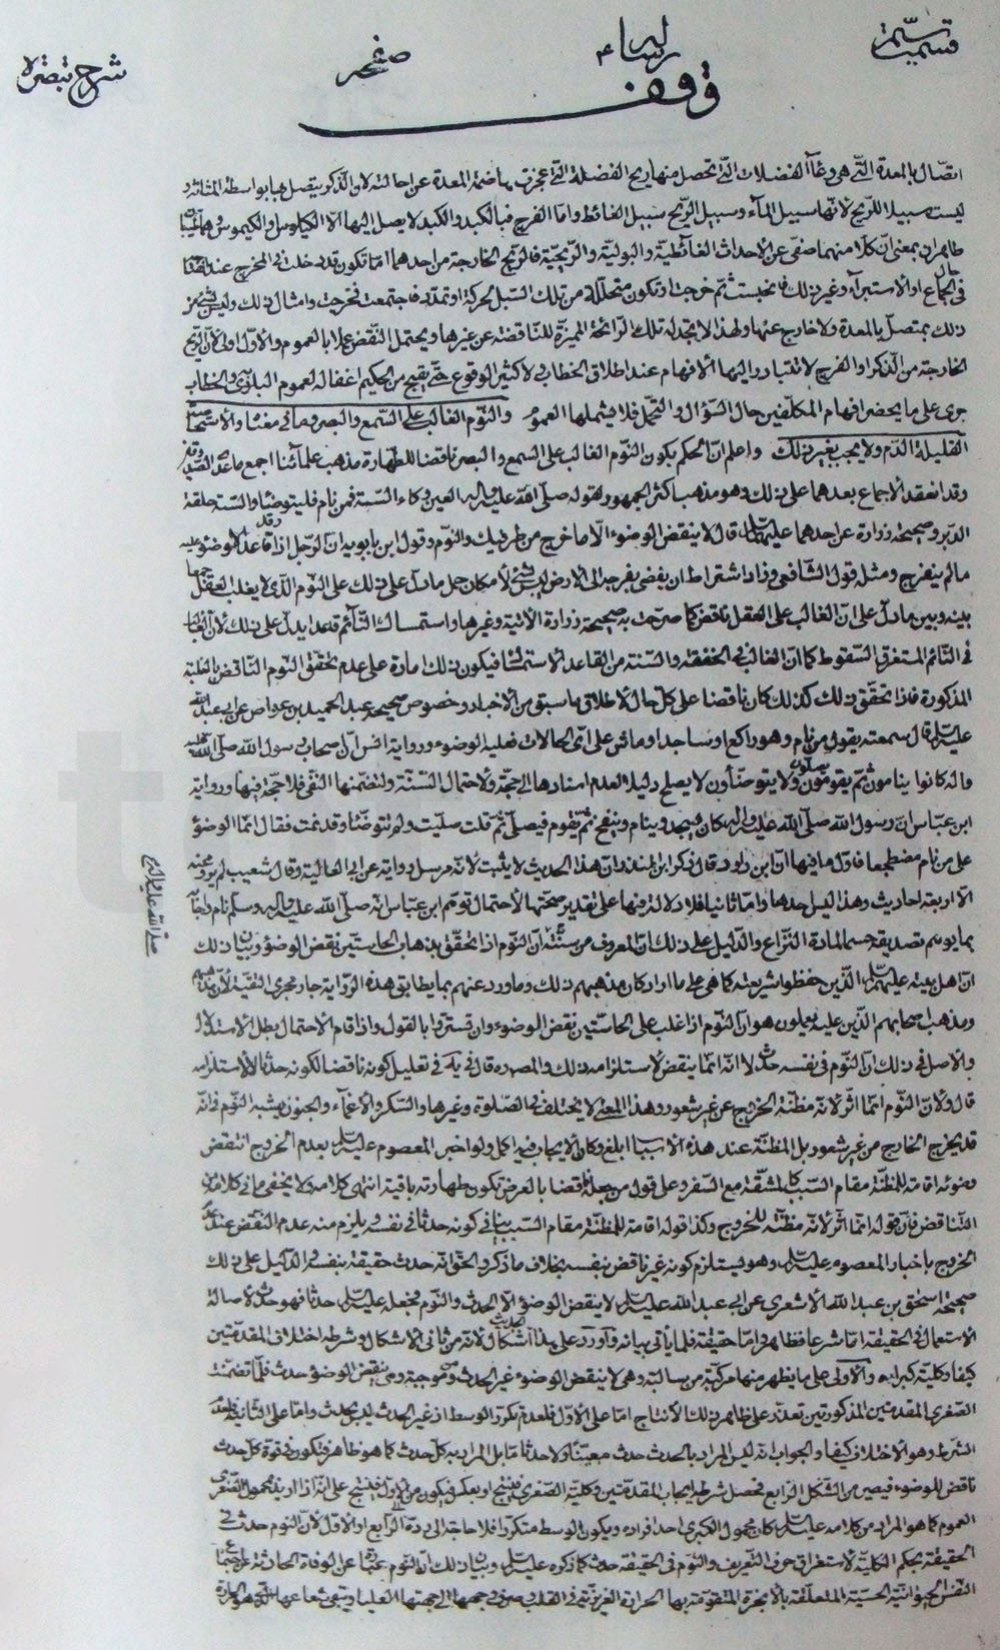 قسمت
رساله
صفحه
شرح تبصره
وقف
اتصال بالمعدة التى هى وعآء الفضلات التى تحصل منها ريح الفضلة التى عجزت هاضمة المعدة عن احالته لان الذكر يتصل بها بواسطة المثانة و
ليست سبيلا للريح لانها سبيل المآء وسبيل الريح سبيل الغائط واما الفرج فبالكبد والكبد لا يصل اليها الا الكيلوس والكيموس وهما
طاهران بمعنى ان كلا منهما صفى عن الاحداث الغائطية والبولية والريحية فالريح الخارجة من احدهما اما تكون قد دخلت فى المخرج عند
فى الجماع او الاستبرآء وغير ذلك فانحبست ثم خرجت او تكون متحللة من تلك السبل لحركة او تمدد فاجتمعت فخرجت وامثال ذلك وليس شئ من
ذلك بمتصل بالمعدة ولا خارج عنها ولهذا لا تجد له تلك الرائحة المميزة للناقضة عن غيرها ويحتمل النقض عملا بالعموم والاول اولى لان الريح
الخارجة من الذكر او الفرج لا تتبادر اليها الافهام عند اطلاق الخطاب ولا كثير الوقوع حتى يقبح من الحكيم اغفاله لعموم البلوى والخطاب
جرى على ما يحضر افهام المكلفين حال السؤال والتحمل فلا يشملها العموم والنوم الغالب على السمع والبصر وما فى معناه والاستحاضة
القليلة الدم ولا يجب بغير ذلك واعلم ان الحكم بكون النوم الغالب على السمع والبصر ناقضا للطهارة مذهب علمآئنا اجمع ما عدا
وقد انعقد الاجماع بعدهما على ذلك وهو مذهب اكثر الجمهور لقوله صلى الله عليه واله العين وكاء السته فمن نام فليتوضأ والسته حلقة
الدبر وصحيحة زرارة عن احدهما عليهما السلام قال لا ينقض الوضوء الا ما خرج من طرفيك والنوم وقول ابن بابويه ان الرجل اذا رقد قاعدا لا وضوء عليه
ما لم ينفرج ومثله قول الشافعى وزاد اشتراط ان يفضى بفرجه الى الارض ليس بشئ لامكان حمل ما دل على ذلك على النوم الذى لا يغلب العقل جمعا
بينه وبين ما دل على ان الغالب على العقل ناقض كما صرحت به صحيحة زرارة الاتية وغيرها واستمساك النآئم قاعدا يدل على ذلك لان الغالب
فى النائم المستغرق السقوط كما ان الغالب فى الخفقة والسنة من القاعد الاستمساك فيكون ذلك امارة على عدم تحقق النوم الناقض بالغلبة
المذكورة فاذا تحقق ذلك كذلك كان ناقضا على كل حال لاطلاق ما سبق من الاخبار وخصوص صحيحة عبد الحميد بن عواض عن ابى عبد الله
عليه السلام قال سمعته يقول من نام وهو راكع او ساجد او ماش على اى الحالات فعليه الوضوء ورواية انس ان اصحاب رسول الله صلى الله عليه
واله كانوا ينامون ثم يقومون يصلون ولا يتوضأون لا يصلح دليلا لعدم اسنادها الى حجة ولاحتمال السنة ولتضمنها النفى فلا حجة فيها ورواية
ابن عباس ان رسول الله صلى الله عليه واله كان يسجد وينام وينفخ ثم يقوم فيصلى ثم قلت صليت ولم تتوضأ وقد نمت فقال انما الوضوء
على من نام مضطجعا فاول ما فيها ان ابن داود قال ذكر ابن المنذر ان هذا الحديث لا يثبت لانه مرسل رواية عن ابى العالية وقال شعيب لم يرو منه
الا اربعة احاديث وهذا ليس احدها واما ثانيا فلا دلالة فيها على تقدير صحتها لاحتمال توهم ابن عباس انه صلى الله عليه واله وسلم نام
بما يوهم تصديقه حسما لمادة النزاع والدليل على ذلك ان المعروف من سنته ان النوم اذا تحقق بذهاب الحاستين نقض الوضوء وبيان ذلك
ان اهل بيته عليهم السلام الذين حفظوا شريعته كما هى على ما اراد كان مذهبهم ذلك وما ورد عنهم بما يطابق هذه الرواية جار مجرى التقية لان مذهبهم
ومذهب اصحابهم الذين عليه يعملون هو ان النوم اذا غلب على الحاستين نقض الوضوء وان تستروا بالقول واذا قام الاحتمال بطل الاستدلال
والاصل فى ذلك ان النوم فى نفسه حدث لا انه انما ينقض لاستلزامه ذلك والمص ره قال فى يه فى تعليل كونه ناقضا لكونه حدثا لا لاستلزامه
قال ولان النوم انما اثر لانه مظنة الخروج عن غير شعور وهذا المعنى لا يختلف فى الصلوة وغيرها والسكر والاغمآء والجنون يشبه النوم فانه
قد يخرج الخارج من غير شعور بل المظنة عند هذه الاسباب ابلغ وكان الايجاب فيه اكمل ولو اخبر المعصوم عليه السلام بعدم الخروج انتقض
وضوئه اقامة للمظنة مقام السبب كالمشقة مع السفر وعلى قول من يجعله ناقضا بالعرض تكون طهارته باقية انتهى كلامه ولا يخفى ما فى كلامه من
التناقض فان قوله انما اثر لانه مظنة للخروج وكذا قوله اقامة للمظنة مقام السبب ينافى كونه حدثا فى نفسه ويلزم منه عدم النقض عند عدم
الخروج باخبار المعصوم عليه السلام وهو يستلزم كونه غير ناقض بنفسه بخلاف ما ذكر والحق انه حدث حقيقة بنفسه والدليل على ذلك
صحيحة اسحق بن عبد الله الاشعرى عن ابى عبد الله عليه السلام لا ينقض الوضوء الا حدث والنوم حدث فجعله عليه السلام حدثا فهو حدث لاصالة
الاستعمال فى الحقيقة اما شرعا فظاهر واما حقيقة فلما يأتى بيانه واورد على هذا الحديث اشكال لانه من ثانى الاشكال وشرطه اختلاف المقدمتين
كيفا وكلية كبراه والاولى على ما يظهر منها مركبة من سالبة وهى لا ينقض الوضوء غير الحدث وموجبة وهى ينقض الوضوء حدث فلما تضمنت
الصغرى المقدمتين المذكورتين تعذر على ظاهر ذلك الانتاج اما على الاول فلعدم تكرر الوسط اذ غير الحدث ليس بحدث واما على الثانية فلعدم
الشرط وهو الاختلاف كيفا والجواب انه ليس المراد بالحدث حدث معينا ولا حدثا ما بل المراد به كل حدث كما هو ظاهر فتكون فى قوة كل حدث
ناقض للوضوء فيصير من الشكل الرابع فحصل شرطه ايجاب المقدمتين وكلية الصغرى فينتج او بعكس فيكون من الاول فينتج على انه اذا اريد بمحمول الصغرى
العموم كما هو المراد من كلامه عليه السلام كان محمول الكبرى احد افراده ويكون الوسط متكررا فلا حاجة الى رده الى الرابع او الاول لان النوم حدث فى
الحقيقة بحكم الكلية لاستغراق حرف التعريف والنوم فى الحقيقة حدث كما ذكره عليه السلام وبيان ذلك ان النوم عبارة عن الوفاة الحادثة عن اجتماع
النفس الحيوانية الحسية المتعلقة بالابخرة المتقومة بها الحرارة الغريزية فى القلب
صلى الله عليه واله